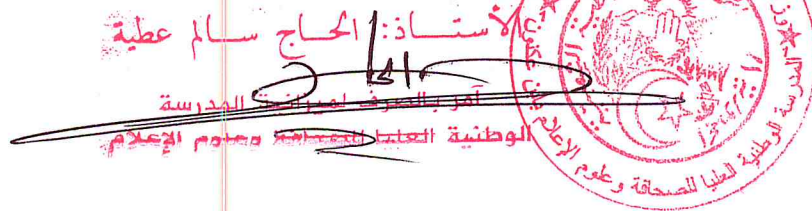 الأستاذ: الحاج سالم عطية
آمر بالصرف لميزانية المدرسة
الوطنية العليا للصحافة وعلوم الإعلام
المدرسة الوطنية العليا للصحافة وعلوم الإعلام